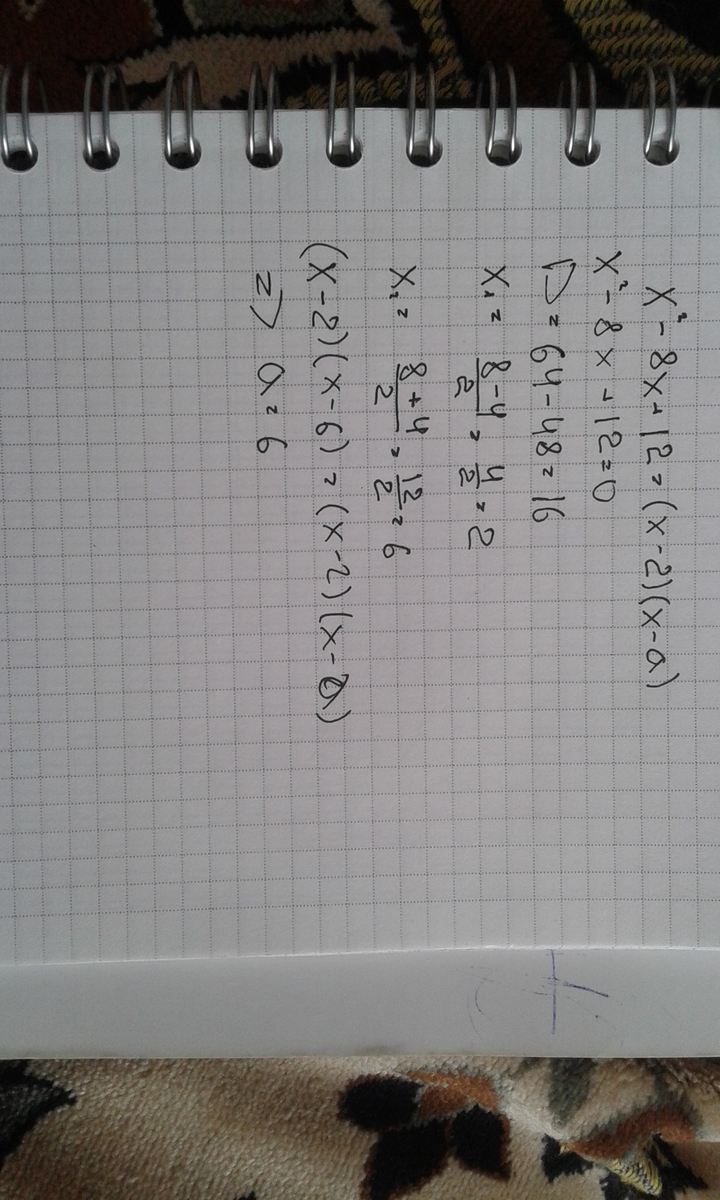 x² - 8x + 12 = (x - 2)(x - a)
x² - 8x + 12 = 0
D = 64 - 48 = 16
x₁ = (8 - 4)/2 = 4/2 = 2
x₂ = (8 + 4)/2 = 12/2 = 6
(x - 2)(x - 6) = (x - 2)(x - a)
=> a = 6